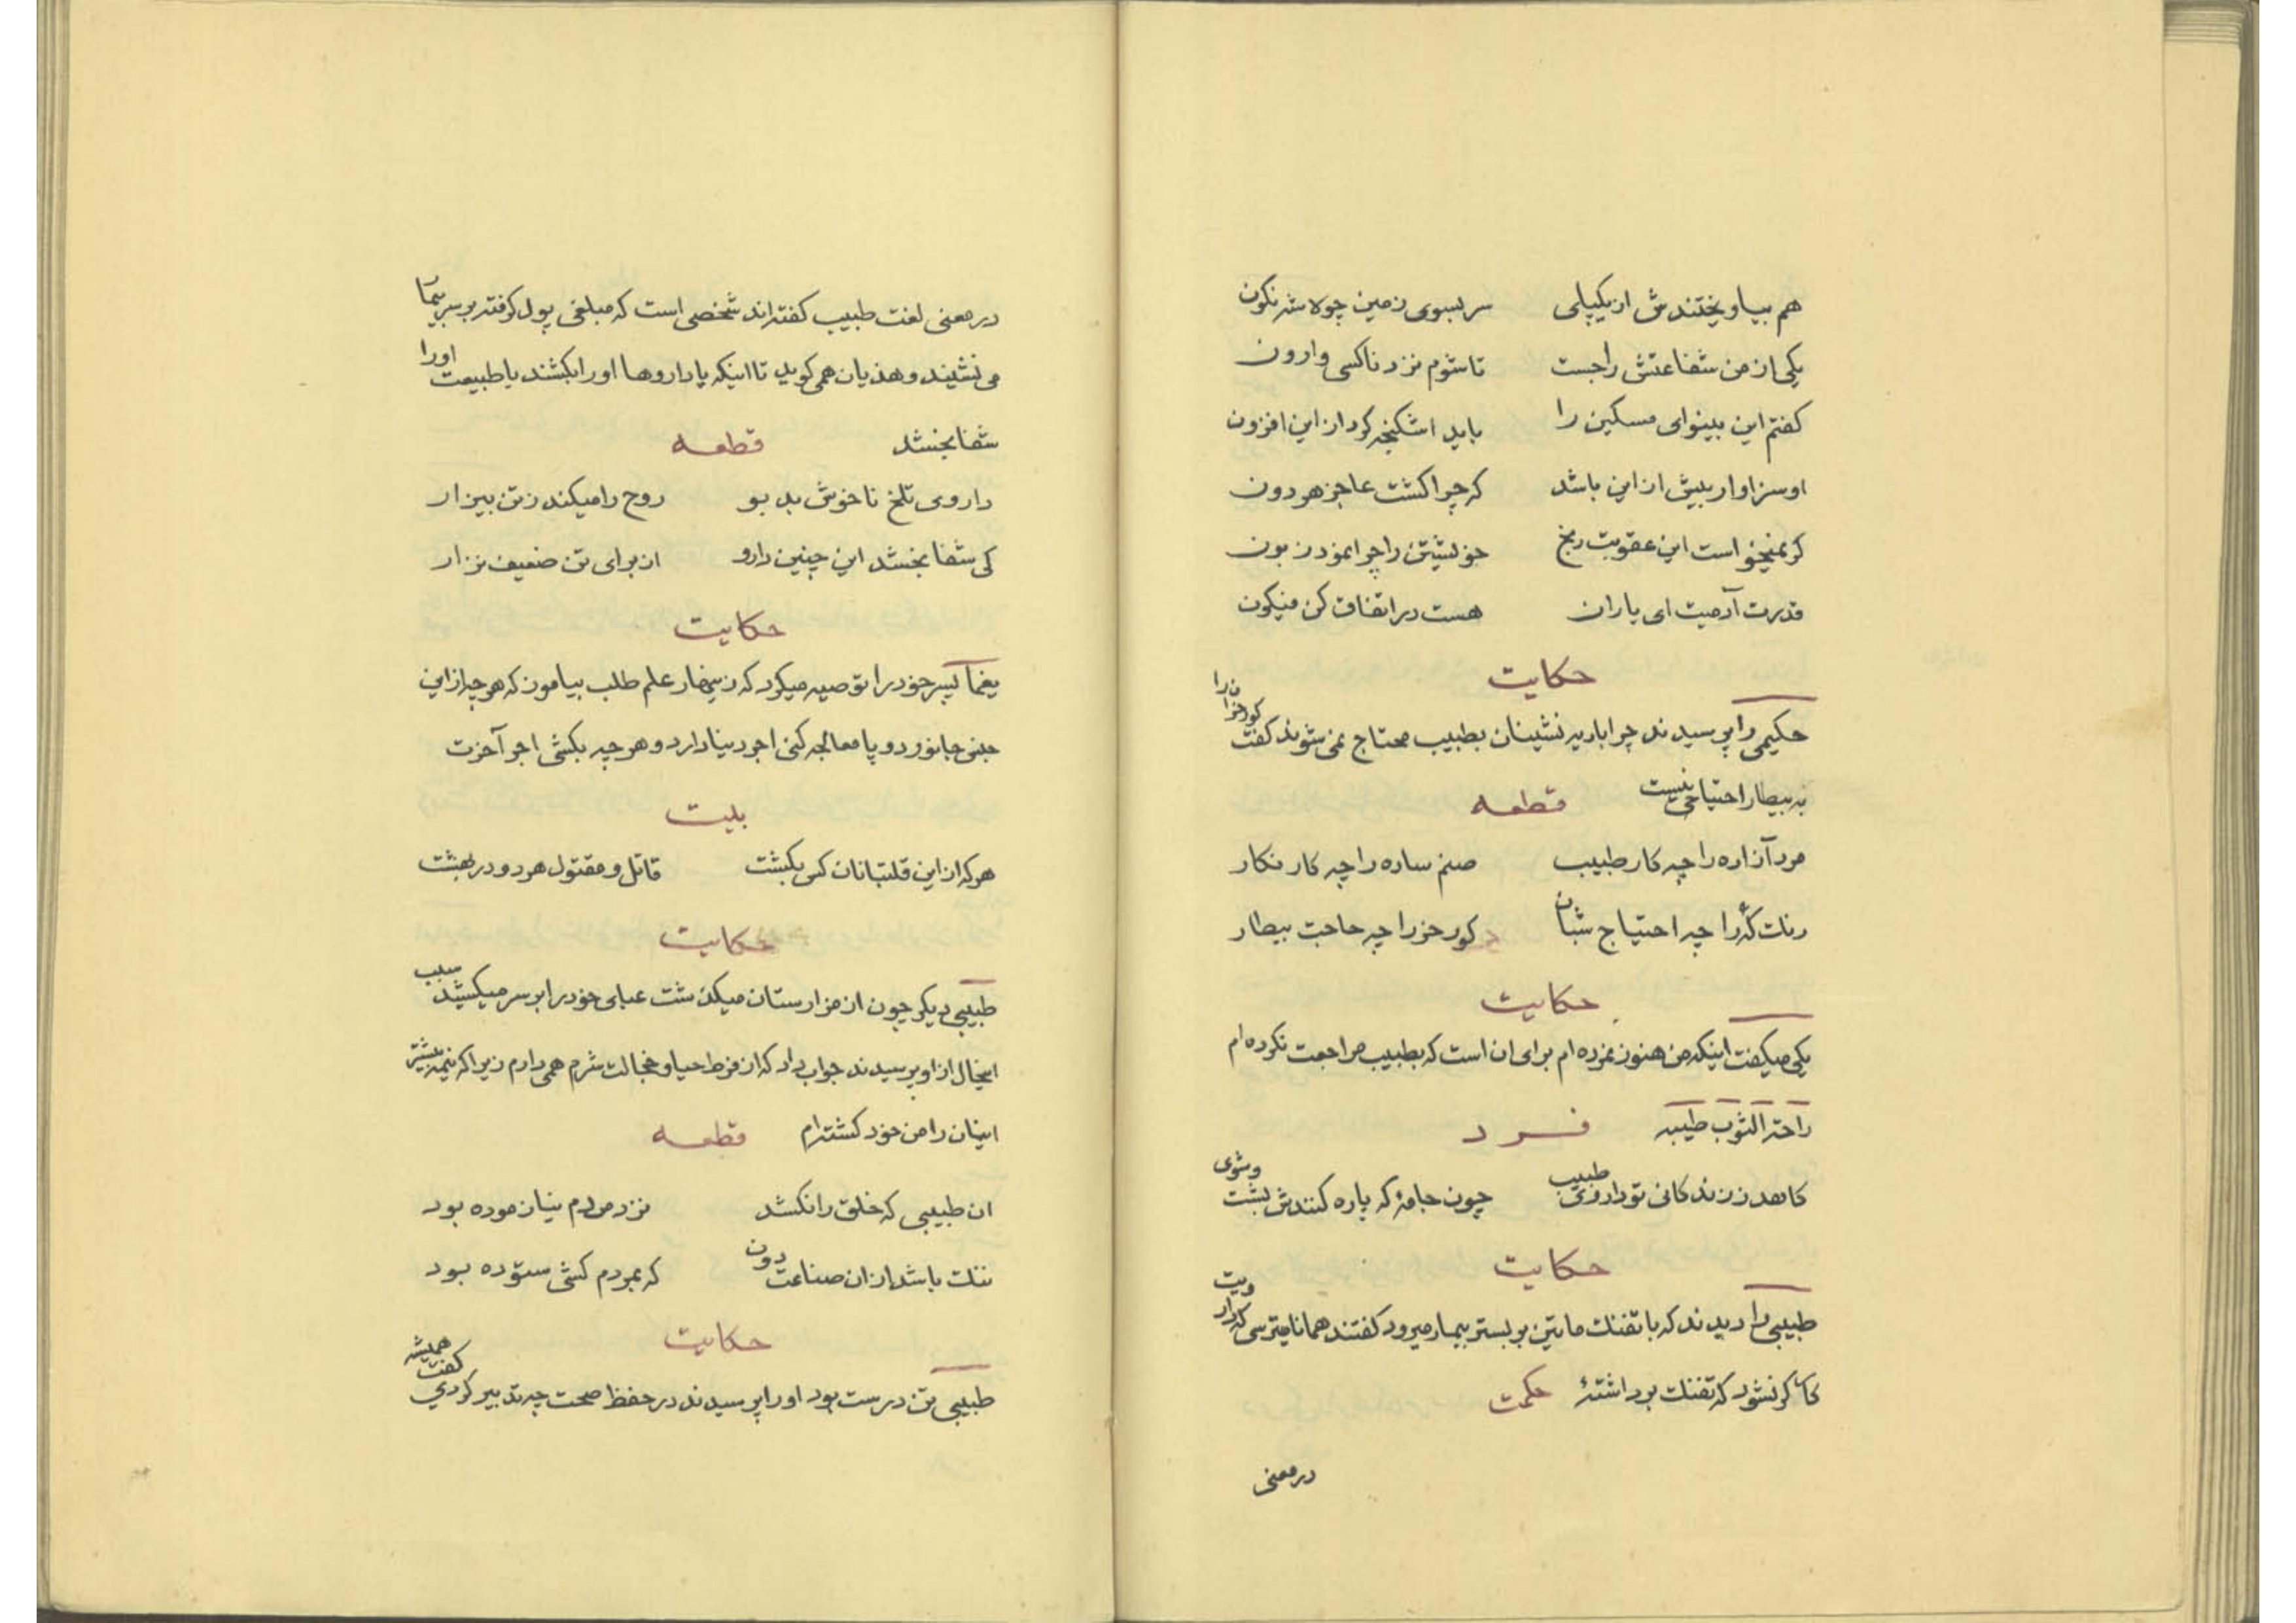 هم بیاویختندش از یکپای سر بسوی زمین چو لاشه نگون
یکی از من شفاعتش را جست تا شوم نزد ناکسی وارون
کفتم این بینوای مسکین را باید اشکنجه کرد از این افزون
او سزاوار بیش از این باشد که چرا کشت عاجز هر دون
کر نمیخواست این عقوبت رنج خویشتن را چرا نمود زبون
قدرت آدمیت ای یاران هست در اتفاق کن فیکون
حکایت
حکیمی را پرسیدند چرا بادیه نشینان بطبیب محتاج نمی شوند کفت کورخران را
به بیطار احتیاجی نیست قطعه
مرد آزاده را چه کار طبیب صنم ساده را چه کار نکار
رنک که را چه احتیاج شبان کورخر را چه حاجت بیطار
حکایت
یکی میکفت اینکه من هنوز نمرده ام برای ان است که بطبیب مراجعت نکرده ام
راحة الثوب طیبه فرد
کاهد ز زندکانی تو داروی طبیب چون جامهٔ که پاره کنندش بشت وشوی
حکایت
طبیبی را دیدند که با تفنک ماتین بر بستر بیمار میرود کفتند همانا میترسی که دارویت
کارکر نشود که تفنک برداشتهٔ حکمت
در معنی
در معنی لغت طبیب کفته اند شخصی است که مبلغی پول کرفته بر سر بیمار
می نشیند و هذیان همی کوید تا اینکه یا داروها او را بکشند یا طبیعت او را
شفا بخشد قطعه
داروی تلخ ناخوش بد بو روح را میکند ز تن بیزار
کی شفا بخشد این چنین دارو از برای تن ضعیف نزار
حکایت
یغما پسر خود را توصیه میکرد که زینهار علم طلب بیاموز که هر چه از این
جنس جانور دو پا معالجه کنی اجر دینا دارد و هر چه بکشی اجر آخرت
بیت
هر که از این قلتبانان کس بکشت قاتل و مقتول هر دو در بهشت
حکایت
طبیبی دیکر چون از مزارستان میکذشت عبای خود را بر سر میکشید سبب
اینحال از او پرسیدند جواب داد که از فرط حیا و خجالت شرم همی دارم زیرا که نیمه بیشتر
اینان را من خود کشته ام قطعه
ان طبیبی که خلق را نکشد نزد مردم نیازموده بود
ننک باشد از ان صناعت دون که بمردم کشی ستوده بود
حکایت
طبیبی تن درست بود او را پرسیدند در حفظ صحت چه تدبیر کردی کفت همیشه